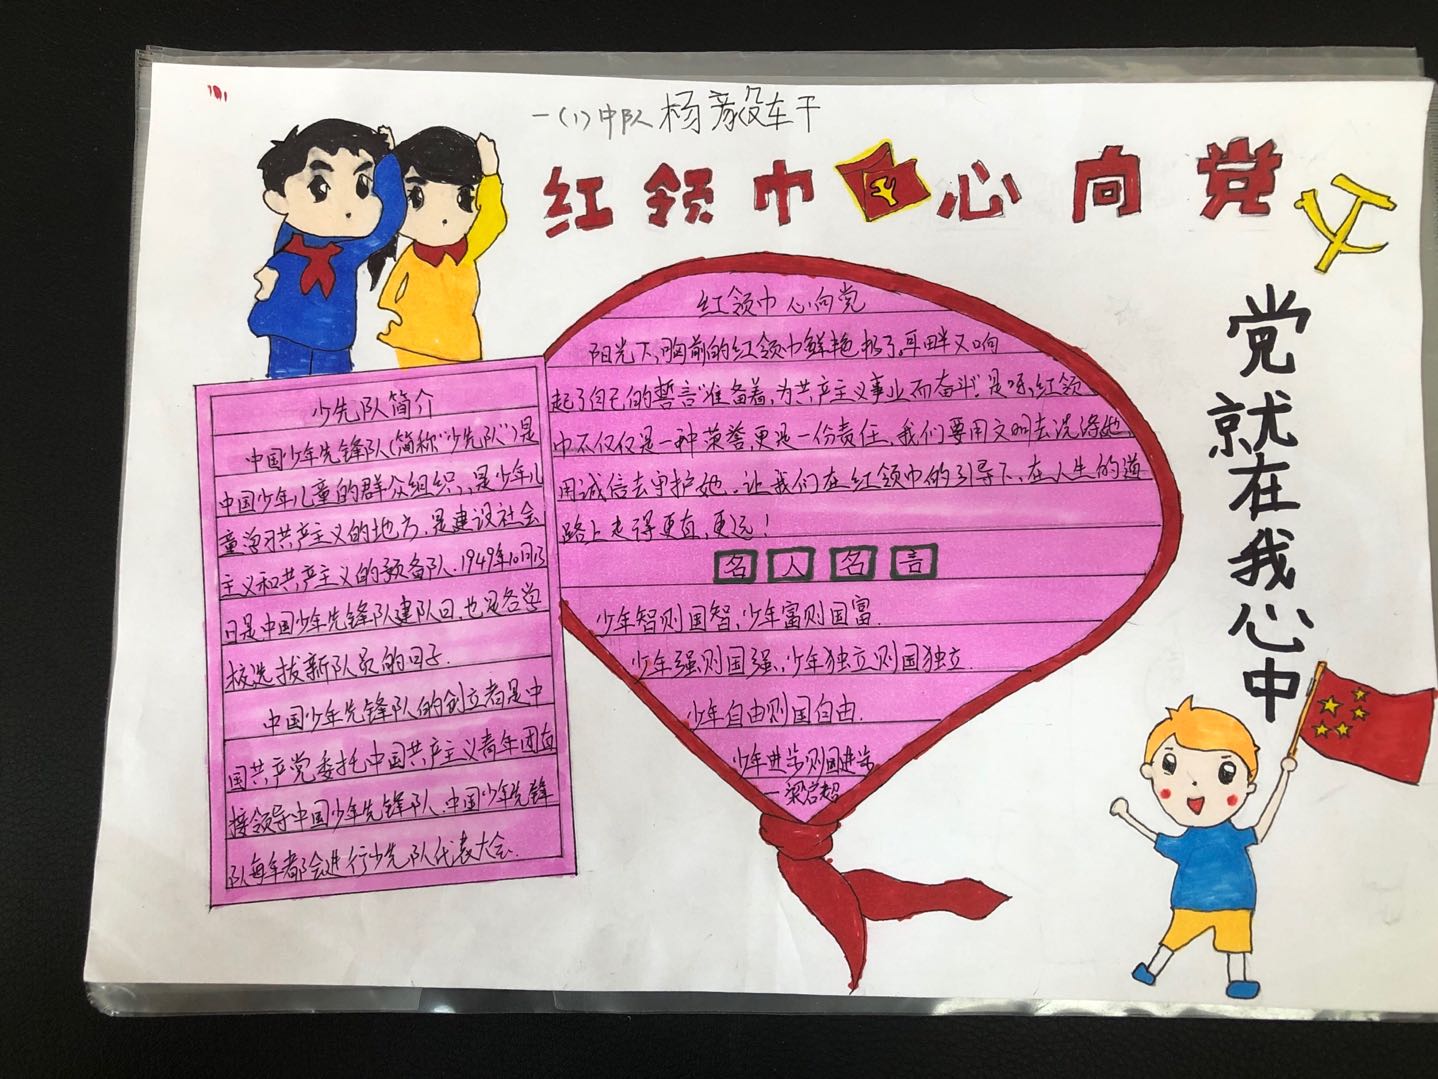 一(1)中队 杨彦
红领巾心向党
党就在我心中
少先队简介
中国少年先锋队(简称"少先队")是
中国少年儿童的群众组织,是少年儿
童学习共产主义的地方,是建设社会
主义和共产主义的预备队.1949年10月13
日是中国少年先锋队建队日,也是各学
校选拔新队员的日子.
中国少年先锋队的创立者是中
国共产党委托中国共产主义青年团直
接领导中国少年先锋队.中国少年先锋
队每年都会进行少先队代表大会.
红领巾 心向党
阳光下,胸前的红领巾鲜艳极了.耳畔又响
起了自己的誓言"准备着,为共产主义事业而奋斗".是呀,红领
巾不仅仅是一种荣誉,更是一份责任.我们要用文明去洗涤她
用诚信去守护她.让我们在红领巾的引导下,在人生的道
路上走得更直,更远!
名人名言
少年智则国智,少年富则国富.
少年强则国强,少年独立则国独立.
少年自由则国自由.
少年进步则国进步
一梁启超